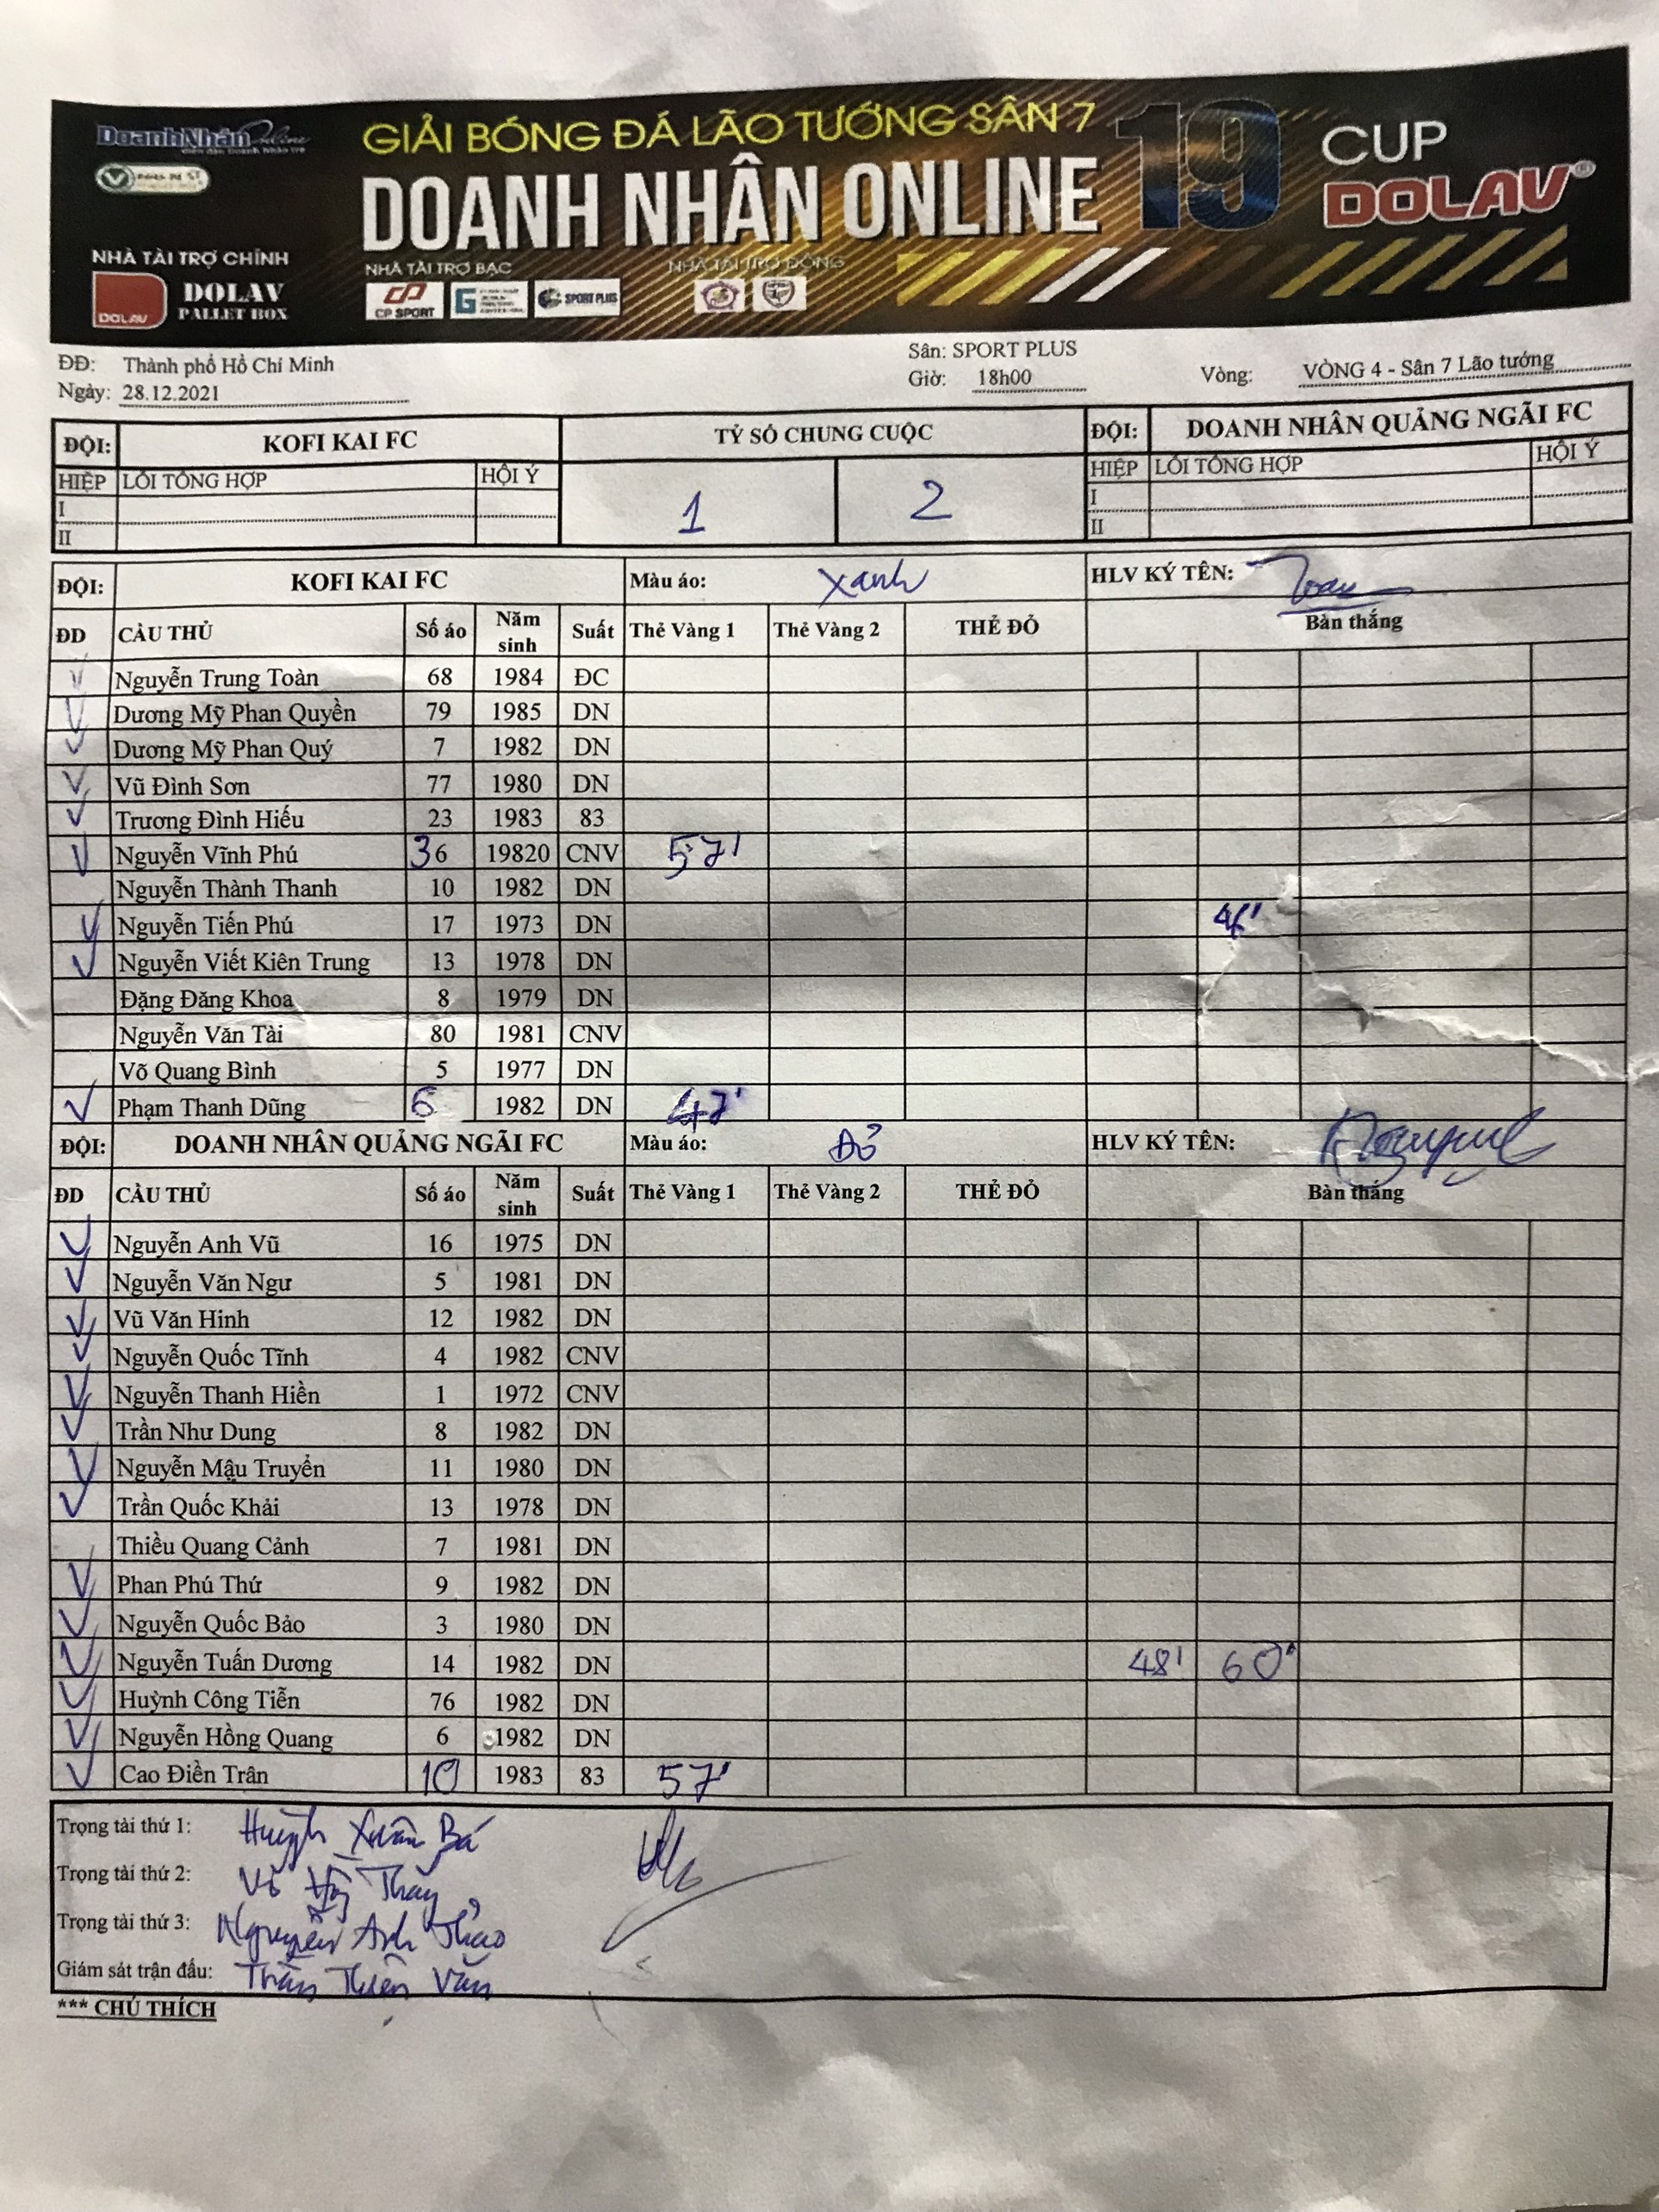 DoanhNhân Online
GIẢI BÓNG ĐÁ LÃO TƯỚNG SÂN 7
DOANH NHÂN ONLINE 19
CUP
DOLAV®
NHÀ TÀI TRỢ CHÍNH
DOLAV
DOLAV
PALLET BOX
NHÀ TÀI TRỢ BẠC
CP SPORT
SPORT PLUS
NHÀ TÀI TRỢ ĐỒNG
ĐĐ: Thành phố Hồ Chí Minh Sân: SPORT PLUS
Ngày: 28.12.2021 Giờ: 18h00 Vòng: VÒNG 4 - Sân 7 Lão tướng
ĐỘI: KOFI KAI FC TỶ SỐ CHUNG CUỘC ĐỘI: DOANH NHÂN QUẢNG NGÃI FC
HIỆP LỖI TỔNG HỢP HỘI Ý 1 2 HIỆP LỖI TỔNG HỢP HỘI Ý
I I
II II
ĐỘI: KOFI KAI FC Màu áo: Xanh HLV KÝ TÊN:
ĐD CẦU THỦ Số áo Năm sinh Suất Thẻ Vàng 1 Thẻ Vàng 2 THẺ ĐỎ Bàn thắng
Nguyễn Trung Toàn 68 1984 ĐC
Dương Mỹ Phan Quyền 79 1985 DN
Dương Mỹ Phan Quý 7 1982 DN
Vũ Đình Sơn 77 1980 DN
Trương Đình Hiếu 23 1983 83
Nguyễn Vĩnh Phú 36 19820 CNV 57'
Nguyễn Thành Thanh 10 1982 DN
Nguyễn Tiến Phú 17 1973 DN
Nguyễn Viết Kiên Trung 13 1978 DN
Đặng Đăng Khoa 8 1979 DN
Nguyễn Văn Tài 80 1981 CNV
Võ Quang Bình 5 1977 DN
Phạm Thanh Dũng 6 1982 DN 47'
ĐỘI: DOANH NHÂN QUẢNG NGÃI FC Màu áo: Đỏ HLV KÝ TÊN:
ĐD CẦU THỦ Số áo Năm sinh Suất Thẻ Vàng 1 Thẻ Vàng 2 THẺ ĐỎ Bàn thắng
Nguyễn Anh Vũ 16 1975 DN
Nguyễn Văn Ngư 5 1981 DN
Vũ Văn Hinh 12 1982 DN
Nguyễn Quốc Tĩnh 4 1982 CNV
Nguyễn Thanh Hiền 1 1972 CNV
Trần Như Dung 8 1982 DN
Nguyễn Mậu Truyển 11 1980 DN
Trần Quốc Khải 13 1978 DN
Thiều Quang Cảnh 7 1981 DN
Phan Phú Thứ 9 1982 DN
Nguyễn Quốc Bảo 3 1980 DN
Nguyễn Tuấn Dương 14 1982 DN 48' 60'
Huỳnh Công Tiễn 76 1982 DN
Nguyễn Hồng Quang 6 1982 DN
Cao Điền Trân 10 1983 83 57'
Trọng tài thứ 1: Huỳnh Xuân Bá
Trọng tài thứ 2: Võ Thầy
Trọng tài thứ 3: Nguyễn Anh Thảo
Giám sát trận đấu: Trần Thiện Văn
*** CHÚ THÍCH